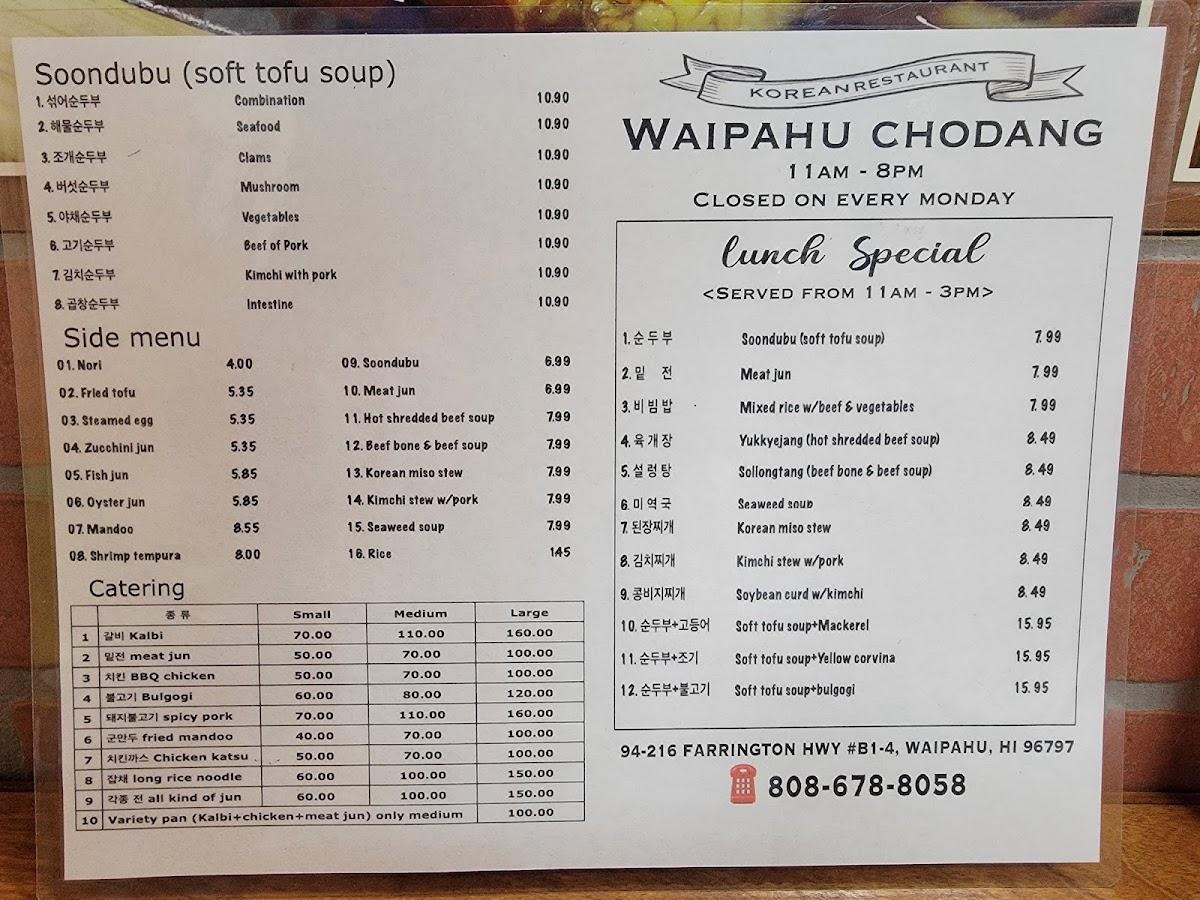 Soondubu (soft tofu soup)
1. 섞어순두부 Combination 10.90
2. 해물순두부 Seafood 10.90
3. 조개순두부 Clams 10.90
4. 버섯순두부 Mushroom 10.90
5. 야채순두부 Vegetables 10.90
6. 고기순두부 Beef of Pork 10.90
7. 김치순두부 Kimchi with pork 10.90
8. 곱창순두부 Intestine 10.90
Side menu
01. Nori 4.00
02. Fried tofu 5.35
03. Steamed egg 5.35
04. Zucchini jun 5.35
05. Fish jun 5.85
06. Oyster jun 5.85
07. Mandoo 8.55
08. Shrimp tempura 8.00
09. Soondubu 6.99
10. Meat jun 6.99
11. Hot shredded beef soup 7.99
12. Beef bone & beef soup 7.99
13. Korean miso stew 7.99
14. Kimchi stew w/pork 7.99
15. Seaweed soup 7.99
16. Rice 1.45
Catering
종류 Small Medium Large
1 갈비 Kalbi 70.00 110.00 160.00
2 밑전 meat jun 50.00 70.00 100.00
3 치킨 BBQ chicken 50.00 70.00 100.00
4 불고기 Bulgogi 60.00 80.00 120.00
5 돼지불고기 spicy pork 70.00 110.00 160.00
6 군만두 fried mandoo 40.00 70.00 100.00
7 치킨까스 Chicken katsu 50.00 70.00 100.00
8 잡채 long rice noodle 60.00 100.00 150.00
9 각종 전 all kind of jun 60.00 100.00 150.00
10 Variety pan (Kalbi+chicken+meat jun) only medium 100.00
KOREAN RESTAURANT
WAIPAHU CHODANG
11AM - 8PM
CLOSED ON EVERY MONDAY
Lunch Special
<SERVED FROM 11AM - 3PM>
1. 순 두 부 Soondubu (soft tofu soup) 7.99
2. 밑 전 Meat jun 7.99
3. 비 빔 밥 Mixed rice w/beef & vegetables 7.99
4. 육 개 장 Yukkyejang (hot shredded beef soup) 8.49
5. 설 렁 탕 Sollongtang (beef bone & beef soup) 8.49
6. 미 역 국 Seaweed soup 8.49
7. 된장찌개 Korean miso stew 8.49
8. 김치찌개 Kimchi stew w/pork 8.49
9. 콩비지찌개 Soybean curd w/kimchi 8.49
10. 순두부+고등어 Soft tofu soup+Mackerel 15.95
11. 순두부+조기 Soft tofu soup+Yellow corvina 15.95
12. 순두부+불고기 Soft tofu soup+bulgogi 15.95
94-216 FARRINGTON HWY #B1-4, WAIPAHU, HI 96797
808-678-8058